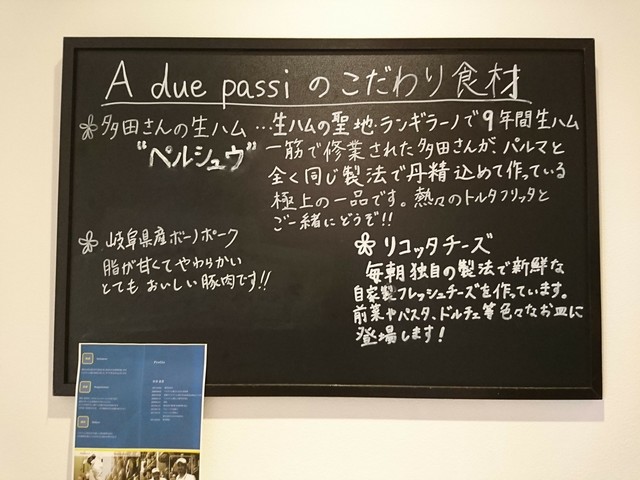 A due passi のこだわり食材
多田さんの生ハム
"ペルシュウ"
…生ハムの聖地・ランギラーノで9年間生ハム
一筋で修業された多田さんが、パルマと
全く同じ製法で丹精込めて作っている
極上の一品です。熱々のトルタフリッタと
ご一緒にどうぞ!!
岐阜県産ボーノポーク
脂が甘くてやわらかい
とてもおいしい豚肉です!!
リコッタチーズ
毎朝独自の製法で新鮮な
自家製フレッシュチーズを作っています。
前菜やパスタ、ドルチェ等色々なお皿に
登場します!